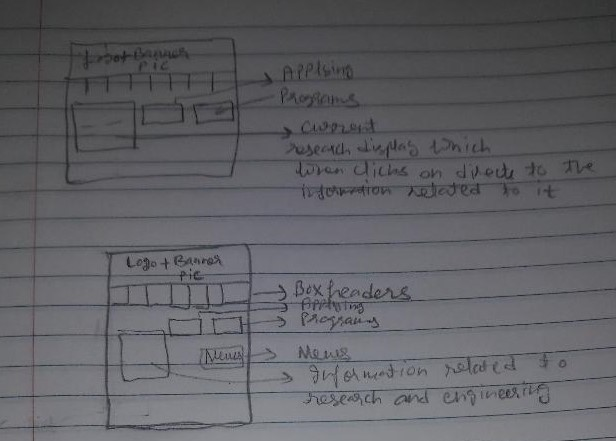 Logo + Banner
Pic
Applying
Programs
Current
research display which
when clicks on directs to the
information related to it
Logo + Banner
Pic
Box headers
Applying
Programs
Menus
Menus
Information related to
research and engineering